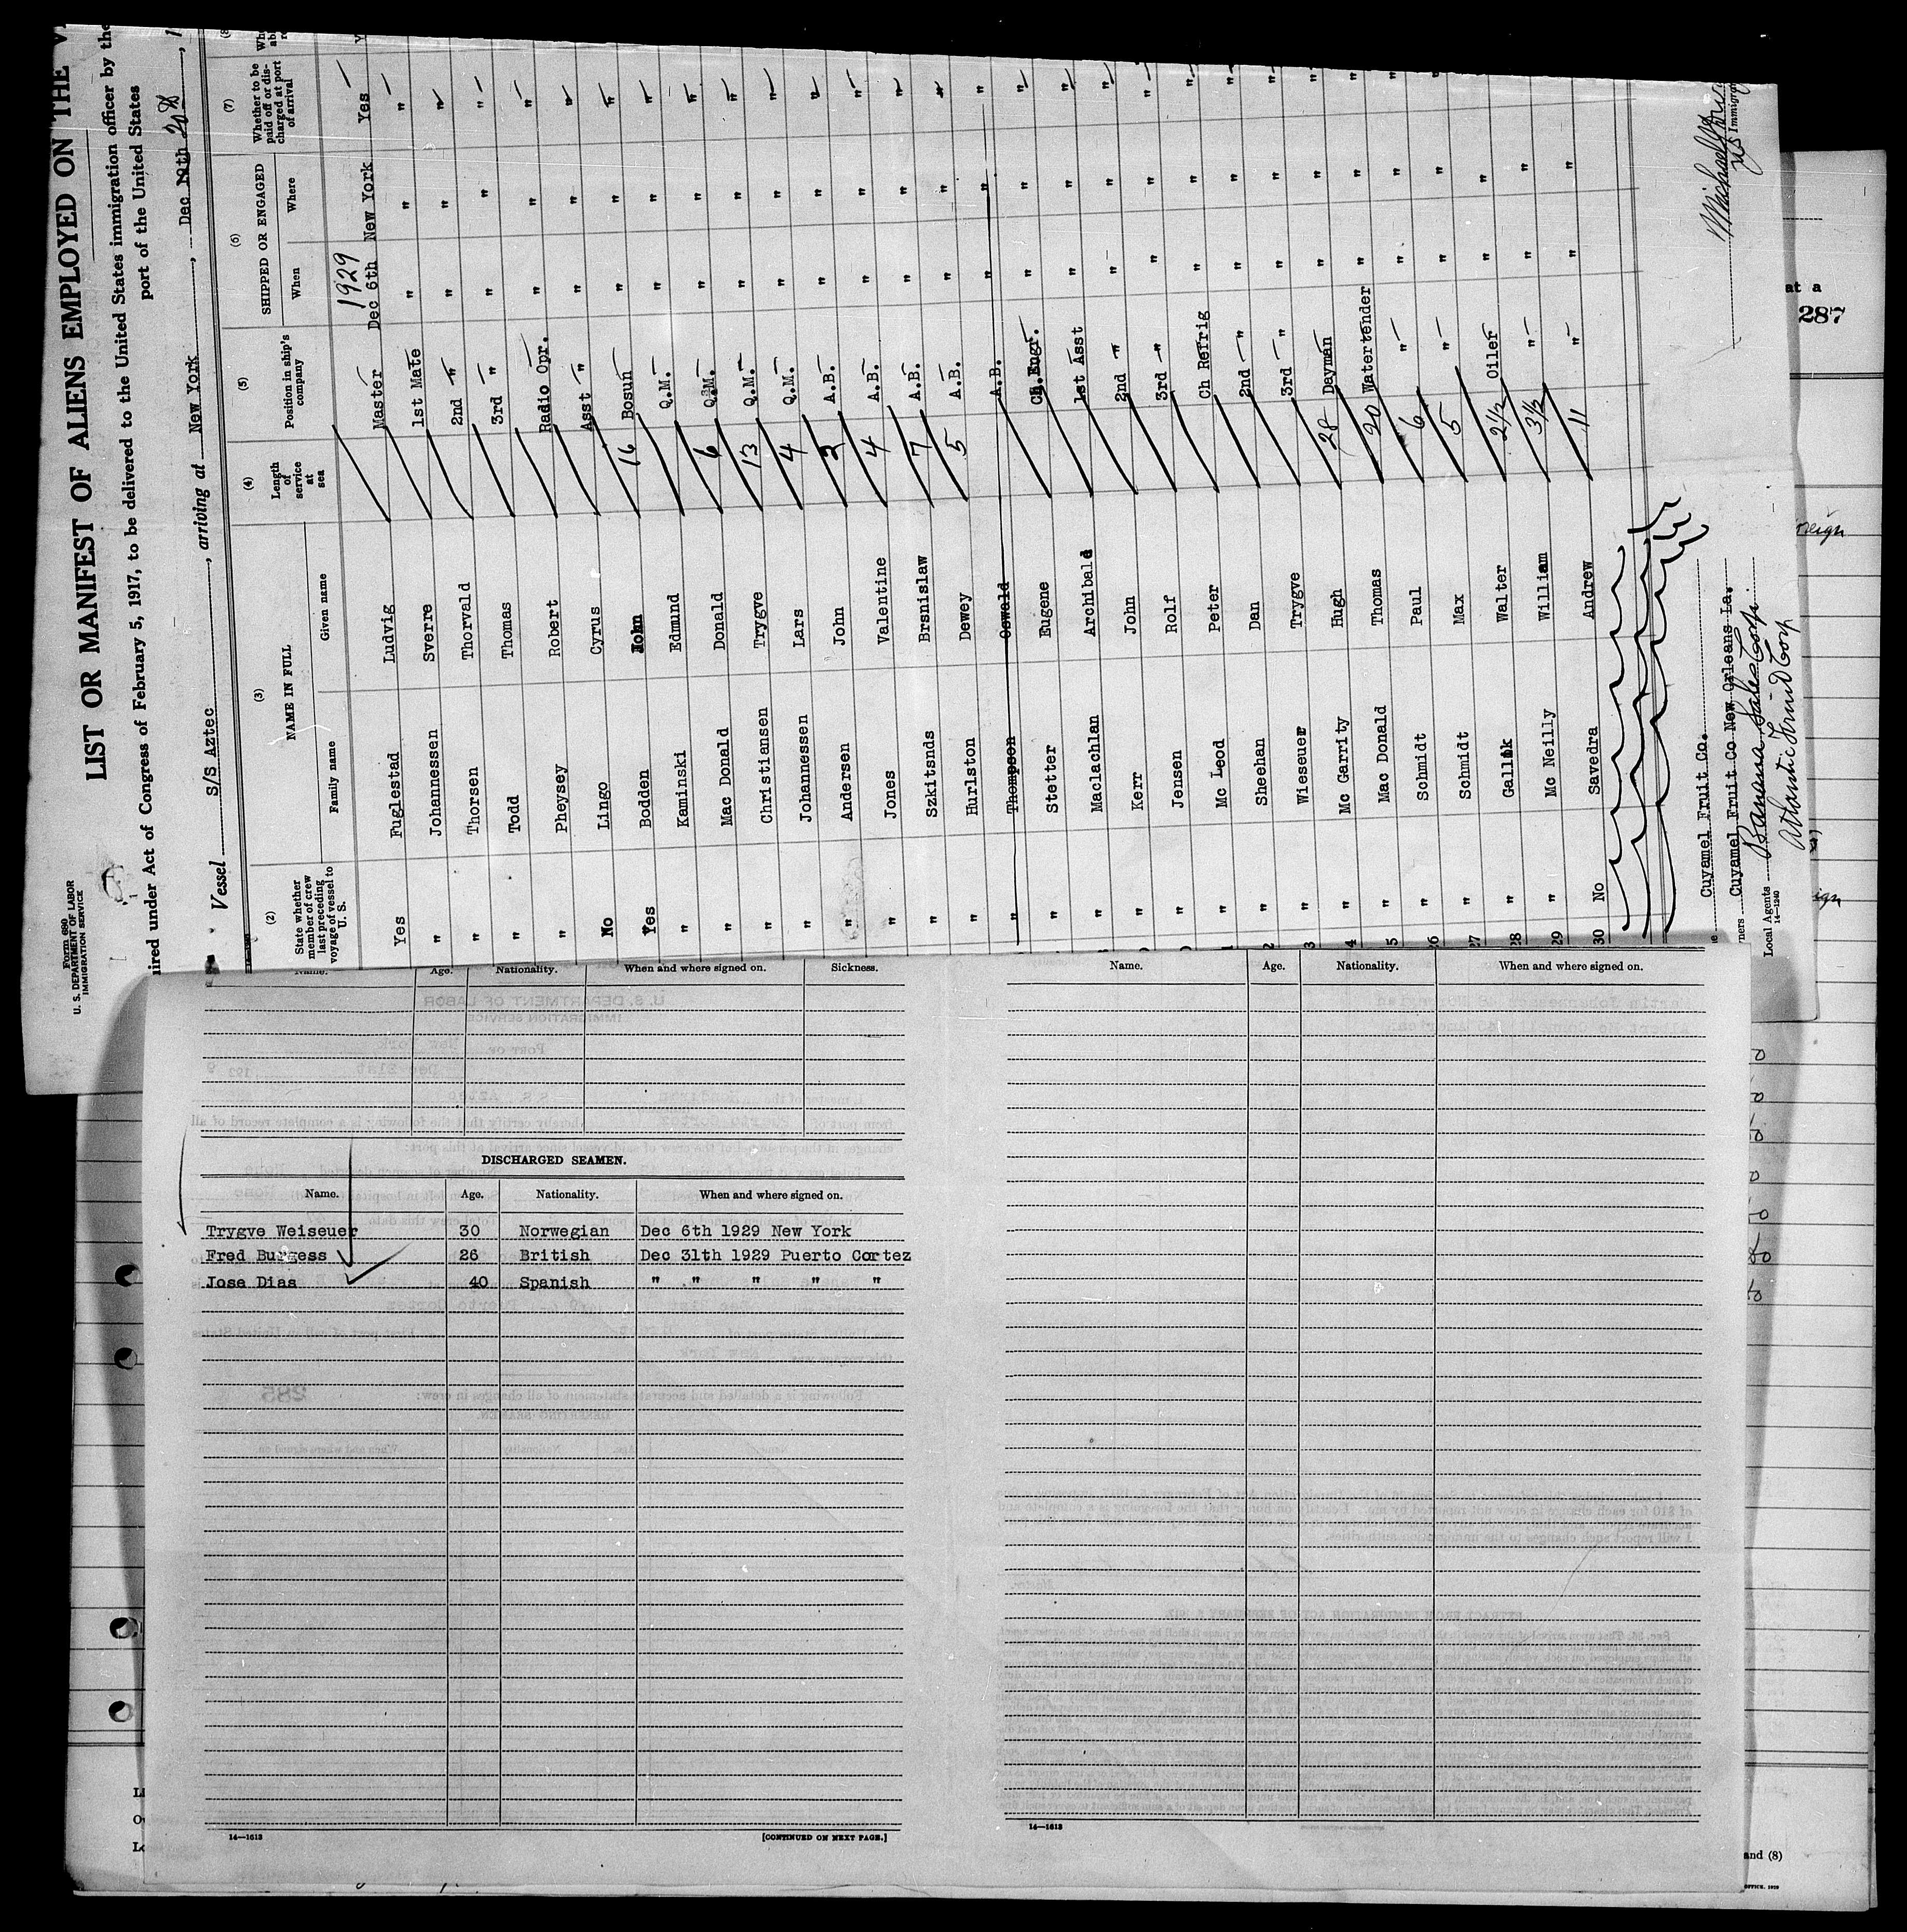 LIST OR MANIFEST OF ALIENS EMPLOYED ON THE
Form 680
U. S. DEPARTMENT OF LABOR
IMMIGRATION SERVICE
ired under Act of Congress of February 5, 1917, to be delivered to the United States immigration officer by the
port of the United States
Vessel S/S Aztec, arriving at New York, Dec 19th 20th
(2) (3) (4) (5) (6) (7)
State whether member of crew last preceding voyage of vessel to U. S.
NAME IN FULL
Family name Given name
Length of service at sea
Position in ship's company
SHIPPED OR ENGAGED
When Where
Whether to be paid off or discharged at port of arrival
1929
Yes Fuglestad Ludvig Master Dec 6th New York Yes
" Johannessen Sverre 1st Mate " " "
" Thorsen Thorvald 2nd " " " "
" Todd Thomas 3rd " " " "
" Pheysey Robert Radio Opr. " " "
No Lingo Cyrus Asst " " " "
Yes Bodden John 16 Bosun " " "
" Kaminski Edmund Q.M. " " "
" Mac Donald Donald 6 Q.M. " " "
" Christiansen Trygve 13 Q.M. " " "
" Johannessen Lars 4 Q.M. " " "
" Andersen John 2 A.B. " " "
" Jones Valentine 4 A.B. " " "
" Szkitsnds Brsnislaw 7 A.B. " " "
" Hurlston Dewey 5 A.B. " " "
" Thompson Oswald A.B. " " "
" Stetter Eugene Ch.Engr. " " "
" Maclachlan Archibald 1st Asst " " "
" Kerr John 2nd " " " "
" Jensen Rolf 3rd " " " "
" Mc Leod Peter Ch Refrig " " "
" Sheehan Dan 2nd " " " "
" Wieseuer Trygve 3rd " " " "
" Mc Garrity Hugh 28 Dayman " " "
" Mac Donald Thomas 20 Watertender " " "
" Schmidt Paul 6 " " " "
" Schmidt Max 5 " " "
28 " Gallik Walter 2½ Oiler " "
29 " Mc Neilly William 3½ " " "
30 No Savedra Andrew 11 " " "
Cuyamel Fruit Co.
Cuyamel Fruit Co New Orleans La.
Local Agents Banana Sales Corp.
14-1240 Atlantic Fruit Corp
Immigra
at a
287
reign
ign
Name. Age. Nationality. When and where signed on. Sickness.
DISCHARGED SEAMEN.
Name. Age. Nationality. When and where signed on.
Trygve Weiseuer 30 Norwegian Dec 6th 1929 New York
Fred Burgess 26 British Dec 31th 1929 Puerto Cortez
Jose Dias 40 Spanish " " " " "
14—1613
[CONTINUED ON NEXT PAGE.]
Name. Age. Nationality. When and where signed on.
14—1613
and (8)